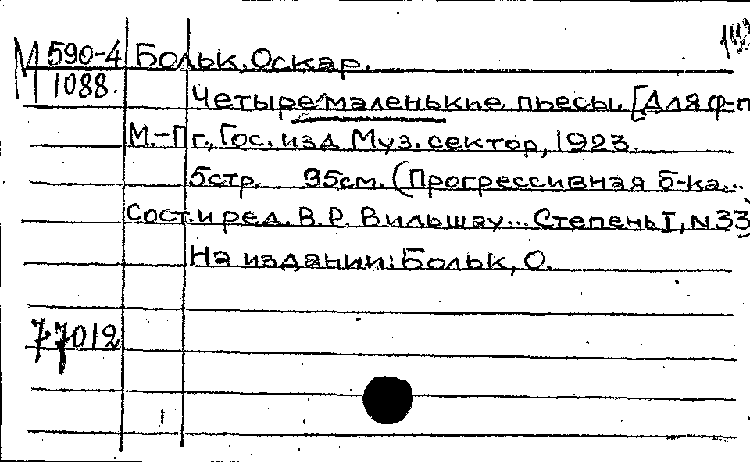 М 590-4 Больк, Оскар.
1088.
Четыре маленькие пьесы. [Для ф-п
М.-Пг., Гос. изд. Муз. сектор, 1923.
5стр. 35см. (Прогрессивная б-ка...
Сост. и ред. В. Р. Вильшау... Степень I, N 33)
На издании: Больк, О.
77012